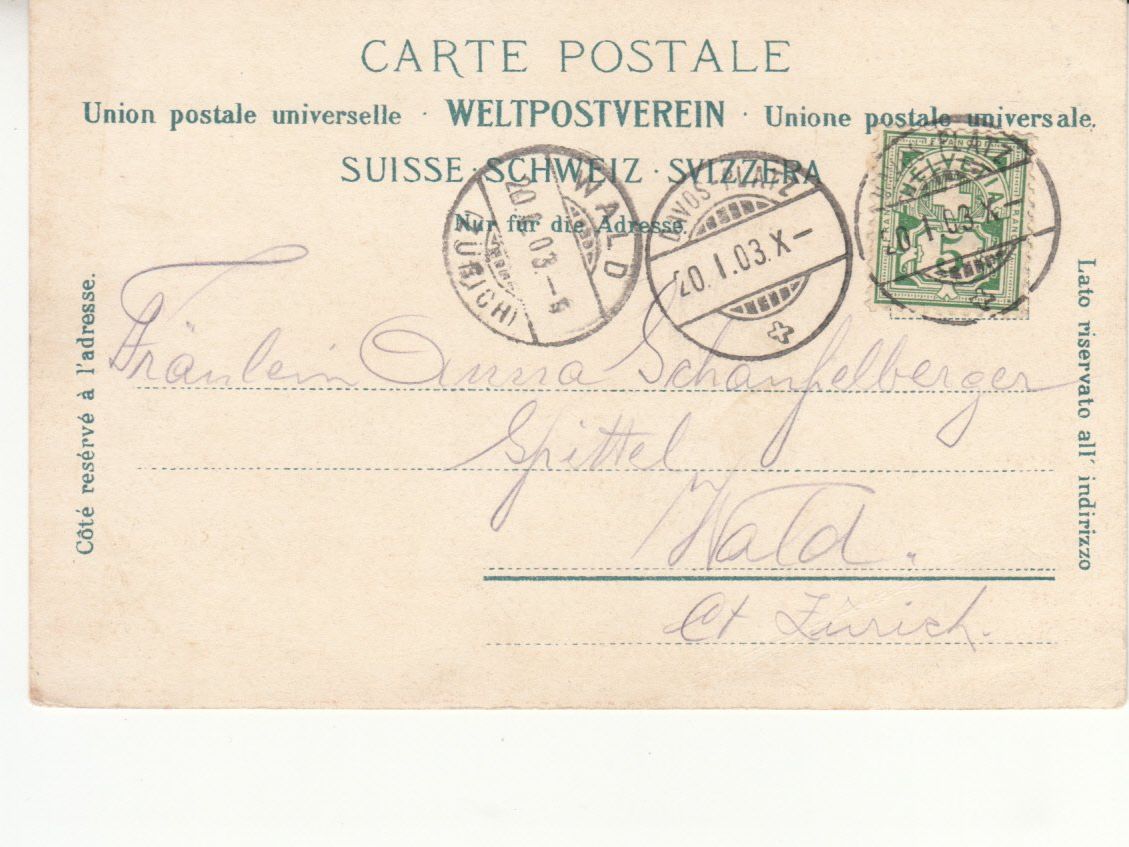 CARTE POSTALE
Union postale universelle · WELTPOSTVEREIN · Unione postale universale.
SUISSE · SCHWEIZ · SVIZZERA
Nur für die Adresse.
WALD
20.I.03.-
(ZÜRICH)
DAVOS-PLATZ
20.I.03.X-
DAVOS-PLATZ
20.I.03.X-
HELVETIA
FRANCO
5
Côté resérvé à l'adresse.
Fräulein Anna Schaufelberger
Spittel
Wald.
Ct Zürich.
Lato riservato all' indirizzo